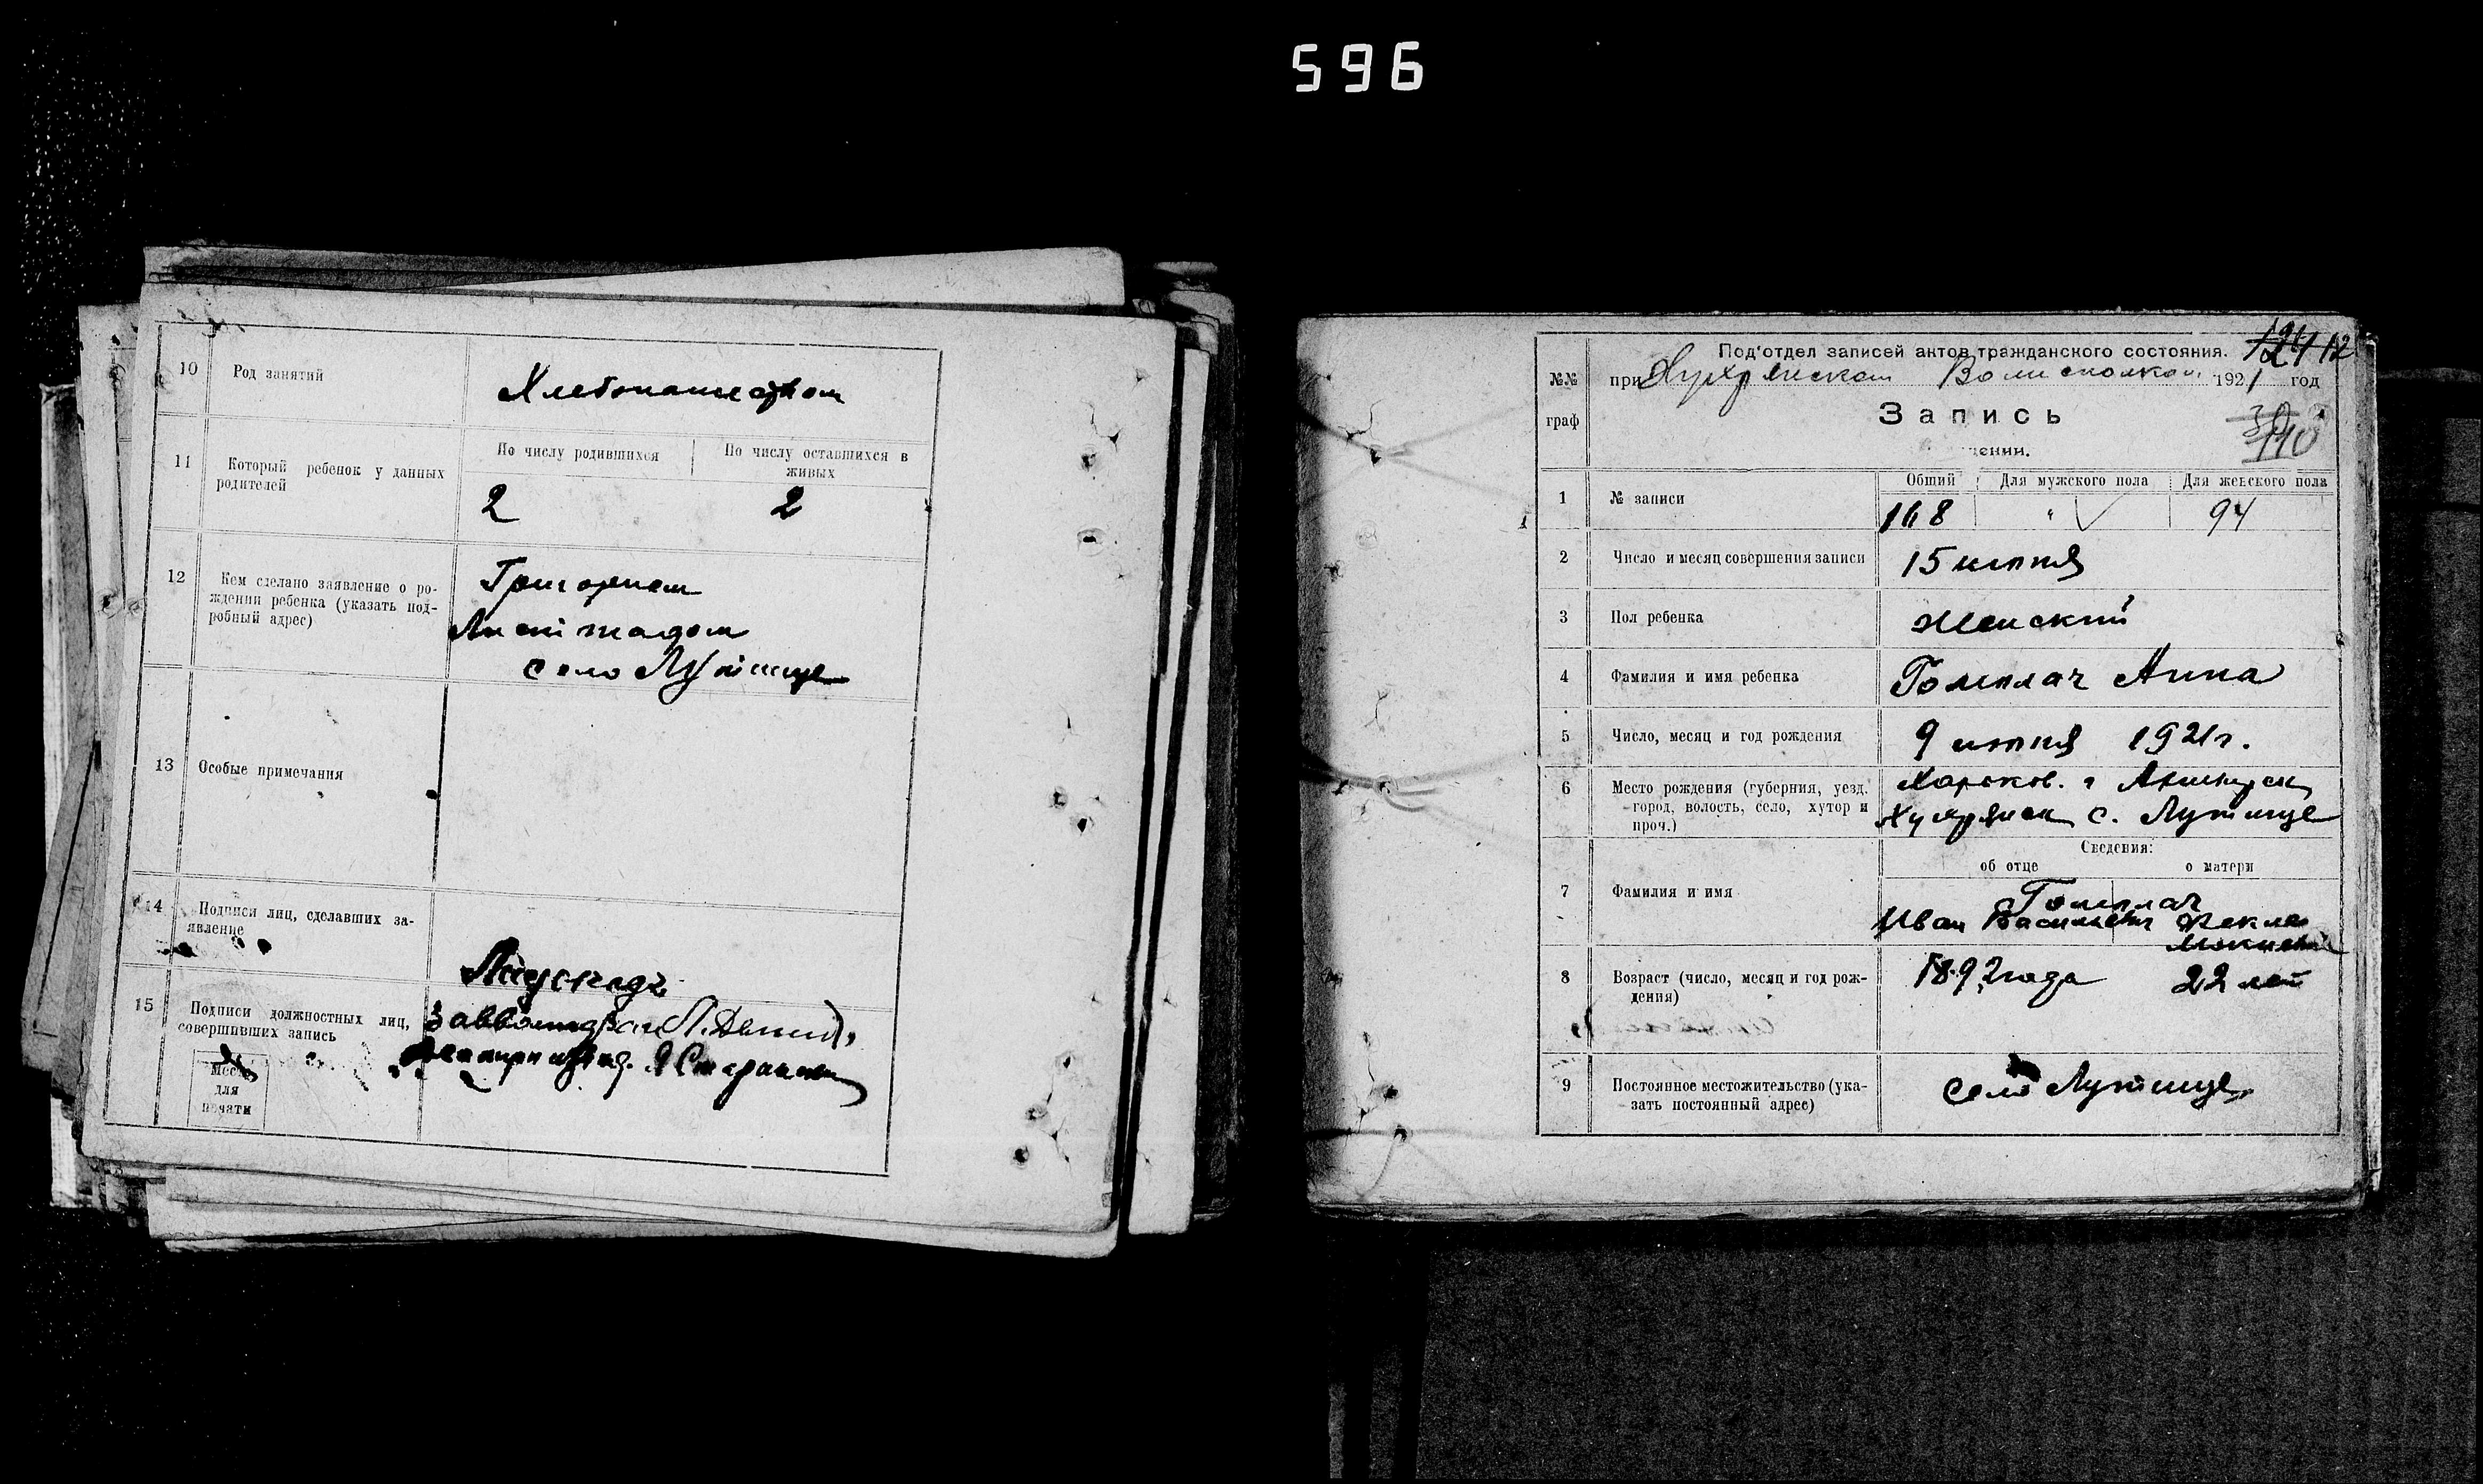 596
10 Род занятий
Хлебопашеством
11 Который ребенок у данных родителей
По числу родившихся
По числу оставшихся в живых
2 2
12 Кем сделано заявление о ро-
ждении ребенка (указать под-
робный адрес)
Григорием
село Лутище
13 Особые примечания
14 Подписи лиц, сделавших за-
явление
15 Подписи должностных лиц,
совершивших запись
Место
для
печати
Под'отдел записей актов гражданского состояния.
№№ граф
при Хухрянском Волисполком 1921 год
Запись
1 № записи
Общий Для мужского пола Для женского пола
168 " 94
2 Число и месяц совершения записи
15 июня
3 Пол ребенка
Женский
4 Фамилия и имя ребенка
Анна
5 Число, месяц и год рождения
9 июня 1921 г.
6 Место рождения (губерния, уезд,
город, волость, село, хутор и
проч.)
Харьков. г Ахтырск
Хухрянск с. Лутище
Сведения:
об отце о матери
7 Фамилия и имя
Иван Васильевич Фекла
8 Возраст (число, месяц и год рож-
дения)
1892 года 22 лет
9 Постоянное местожительство (ука-
зать постоянный адрес)
Село Лутище